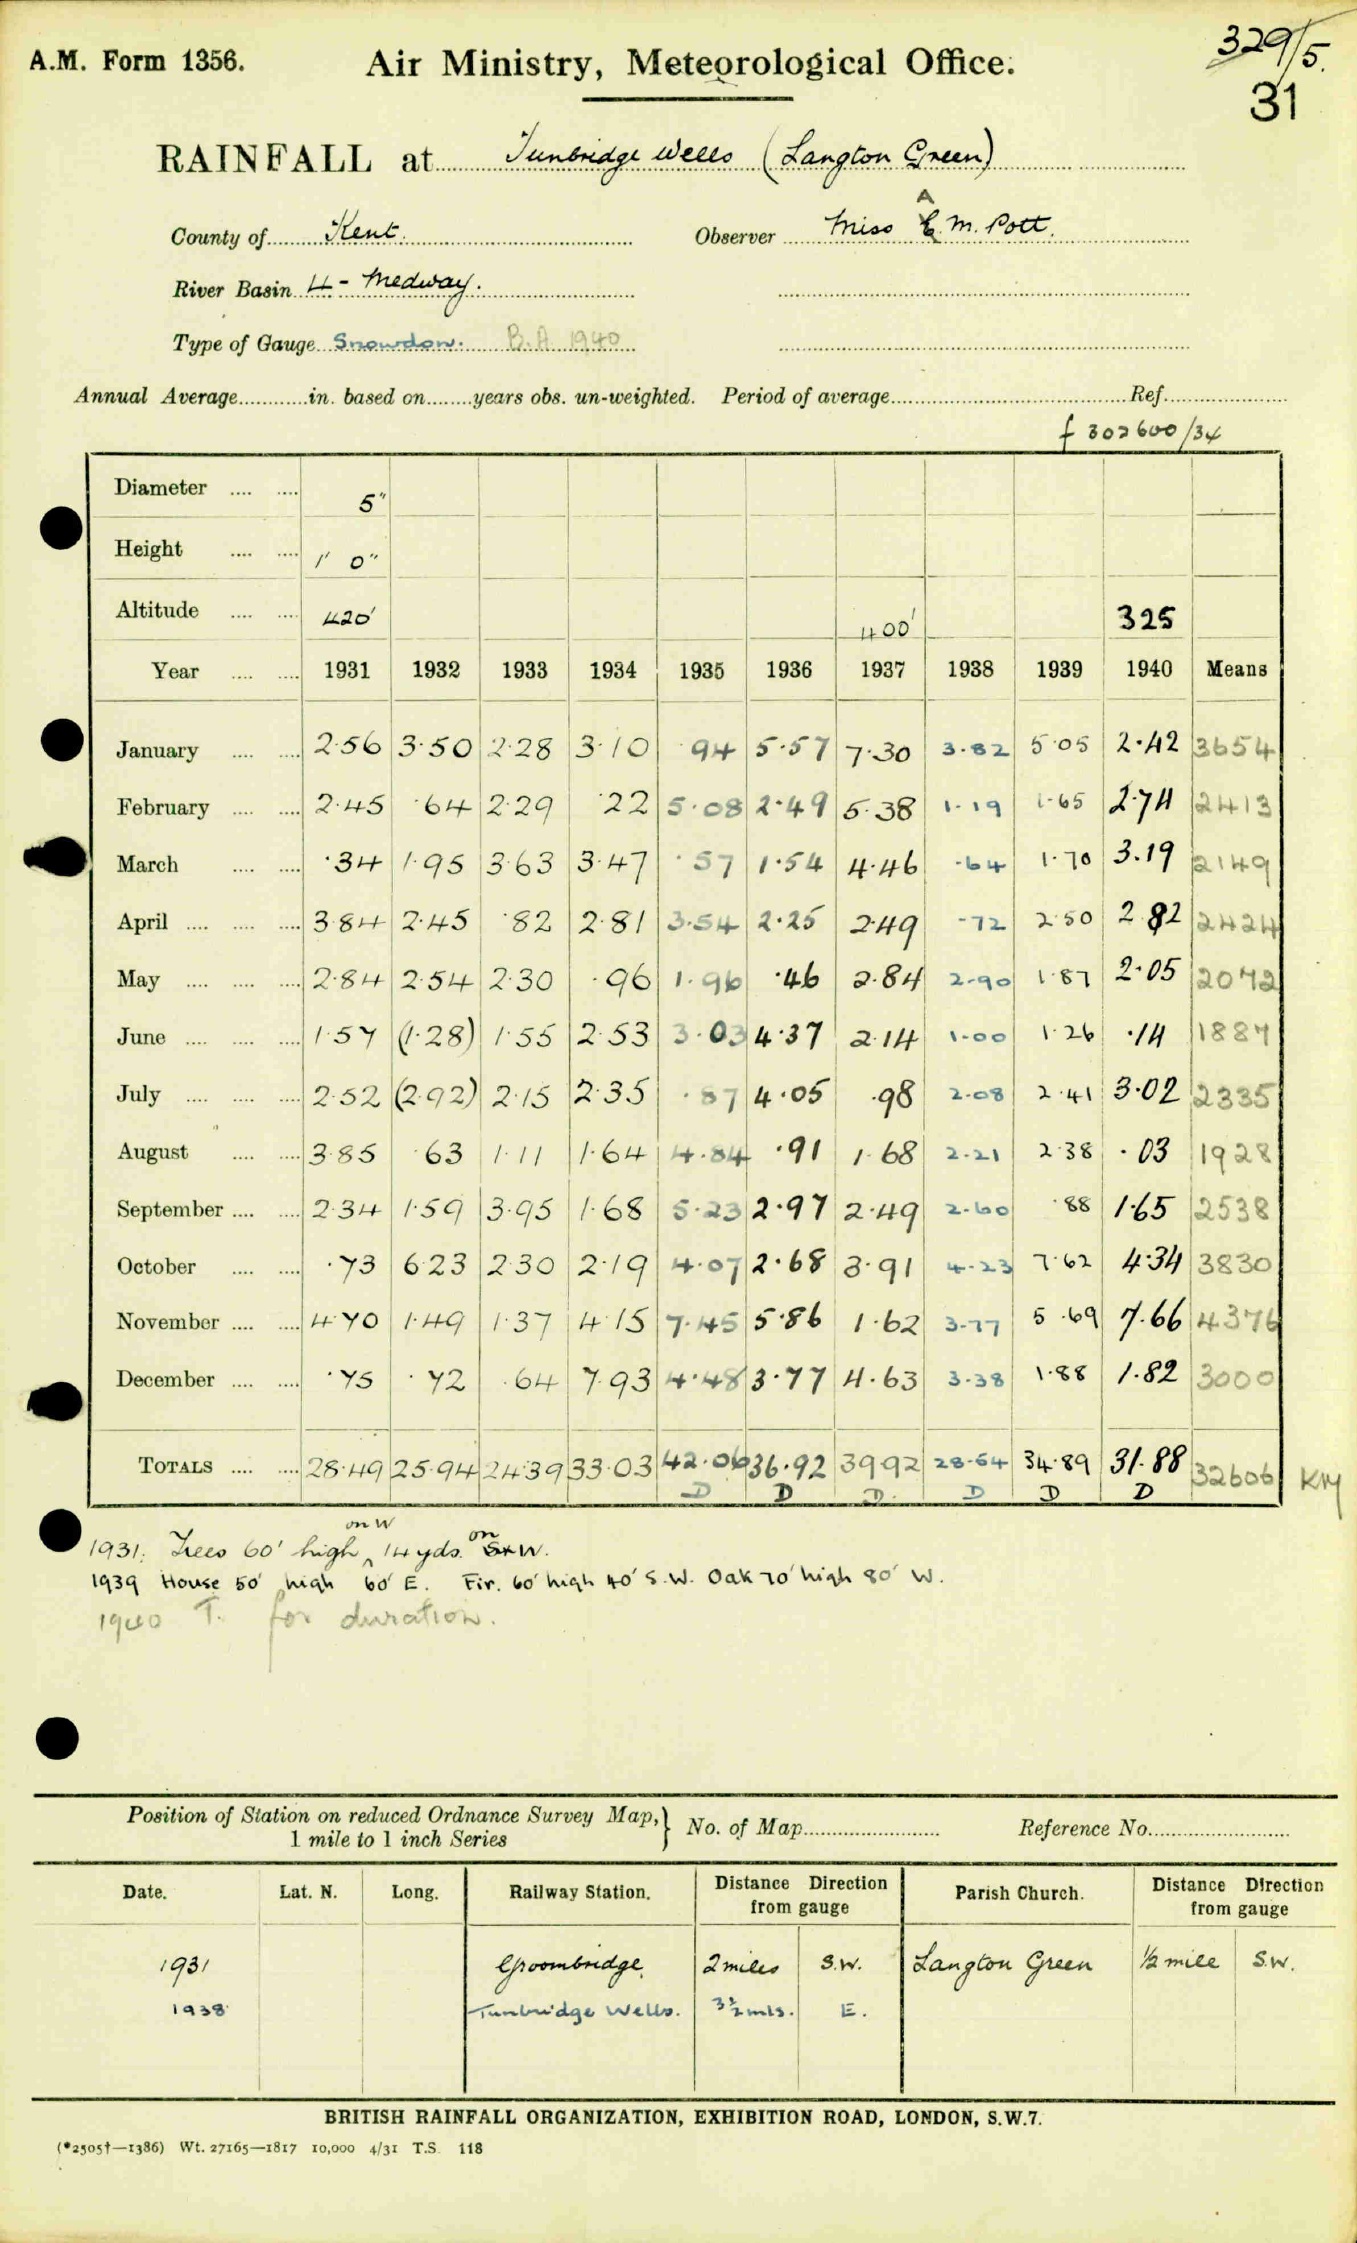 A.M. Form 1356.
Air Ministry, Meteorological Office.
329/5.
31
RAINFALL at Tunbridge Wells (Langton Green)
County of Kent. Observer Miss A M. Pott.
River Basin 4 - Medway.
Type of Gauge Snowdon. B.A. 1940
Annual Average in. based on years obs. un-weighted. Period of average Ref.
f 302600/34
Diameter 5"
Height 1' 0"
Altitude 420' 400' 325
Year 1931 1932 1933 1934 1935 1936 1937 1938 1939 1940 Means
January 2.56 3.50 2.28 3.10 .94 5.57 7.30 3.82 5.05 2.42 3654
February 2.45 .64 2.29 .22 5.08 2.49 5.38 1.19 1.65 2.74 2413
March .34 1.95 3.63 3.47 .57 1.54 4.46 .64 1.70 3.19 2149
April 3.84 2.45 .82 2.81 3.54 2.25 2.49 .72 2.50 2.82 2424
May 2.84 2.54 2.30 .96 1.96 .46 2.84 2.90 1.87 2.05 2072
June 1.57 (1.28) 1.55 2.53 3.03 4.37 2.14 1.00 1.26 .14 1887
July 2.52 (2.92) 2.15 2.35 .87 4.05 .98 2.08 2.41 3.02 2335
August 3.85 .63 1.11 1.64 4.84 .91 1.68 2.21 2.38 .03 1928
September 2.34 1.59 3.95 1.68 5.23 2.97 2.49 2.60 .88 1.65 2538
October .73 6.23 2.30 2.19 4.07 2.68 3.91 4.23 7.62 4.34 3830
November 4.70 1.49 1.37 4.15 7.45 5.86 1.62 3.77 5.69 7.66 4376
December .75 .72 .64 7.93 4.48 3.77 4.63 3.38 1.88 1.82 3000
TOTALS 28.49 25.94 24.39 33.03 42.06 36.92 39.92 28.54 34.89 31.88 32606
D D D D D D
1931: Trees 60' high on W 14 yds. on W.
1939 House 50' high 60' E. Fir. 60' high 40' S.W. Oak 70' high 80' W.
1940 T. for duration.
Position of Station on reduced Ordnance Survey Map, } No. of Map Reference No.
1 mile to 1 inch Series
Date. Lat. N. Long. Railway Station. Distance Direction from gauge Parish Church. Distance Direction from gauge
1931 Groombridge. 2 miles S.W. Langton Green ½ mile S.W.
1938 Tunbridge Wells. 3½ mls. E.
BRITISH RAINFALL ORGANIZATION, EXHIBITION ROAD, LONDON, S.W.7.
(*2505†—1386) Wt. 27165—1817 10,000 4/31 T.S. 118